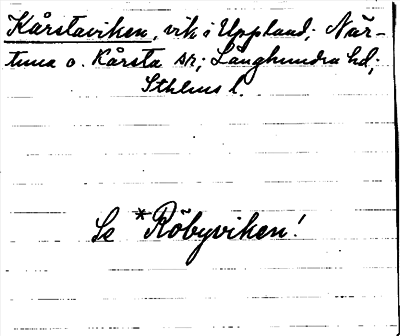 Kårstaviken, vik i Uppland; När-
tuna o. Kårsta sn; Långhundra hd;
Sthlms l.
Se *Röbyviken!